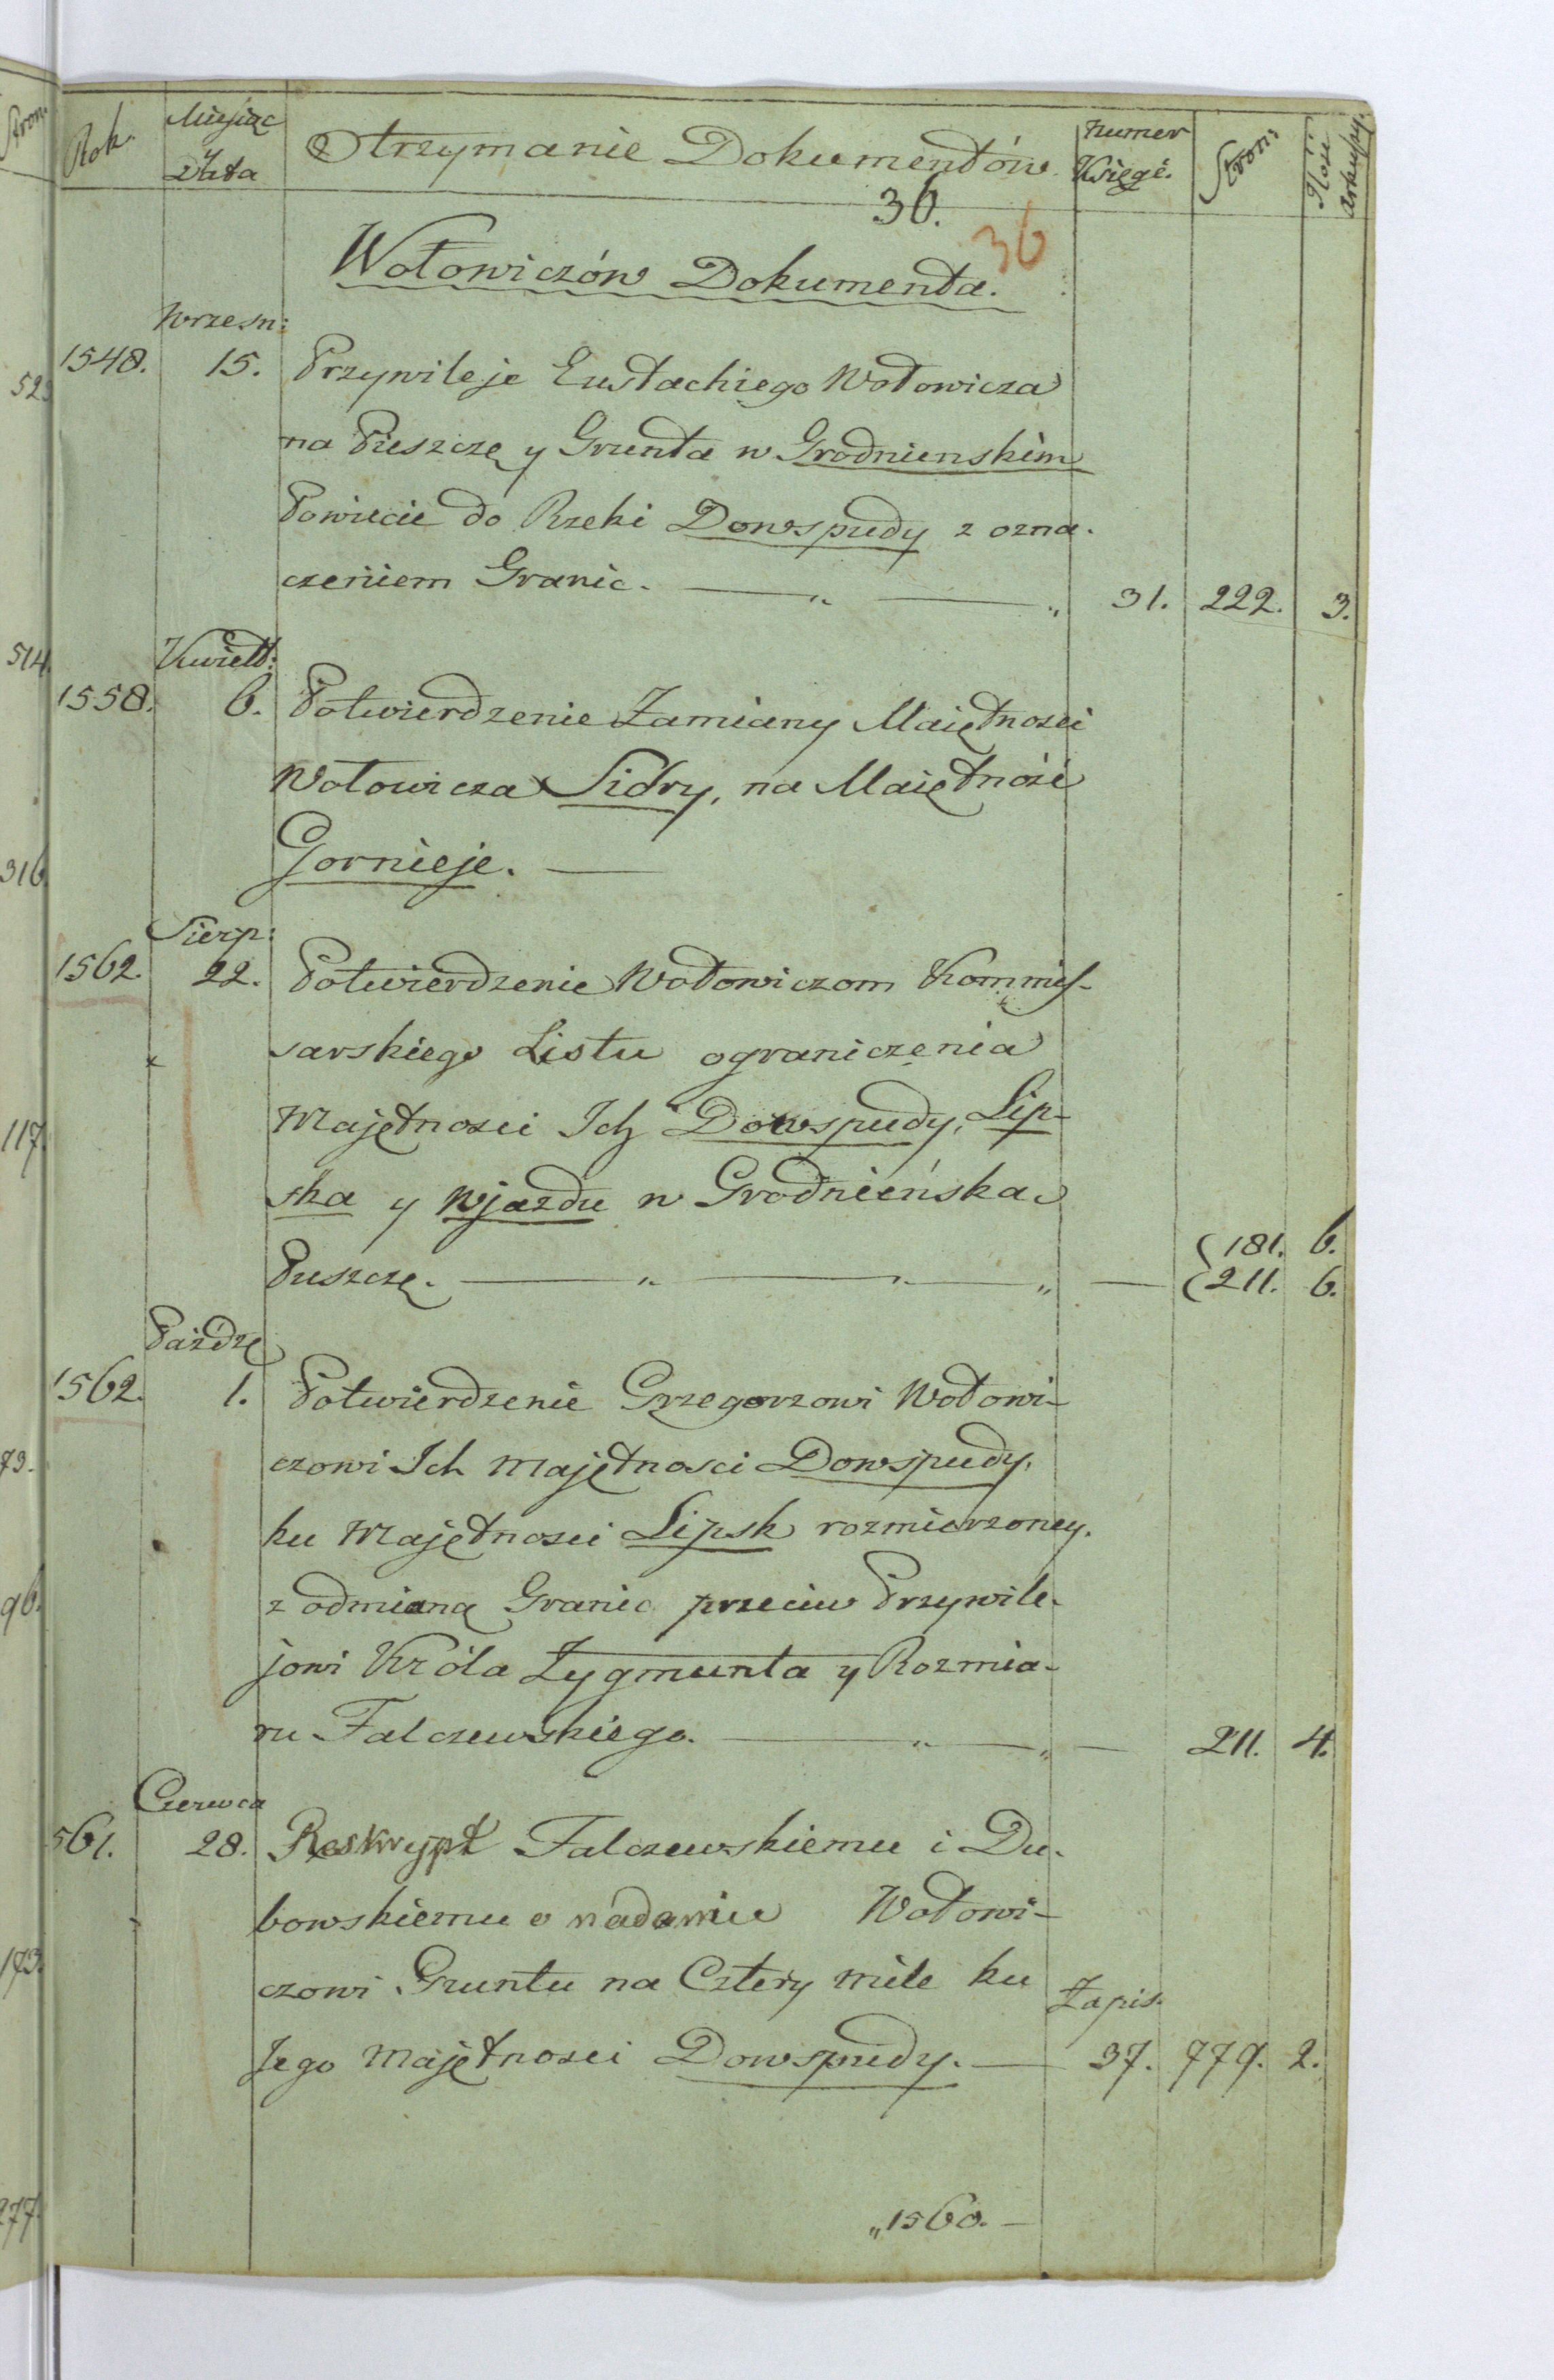 Rok. Miesiąc y Data Otrzymanie Dokumentów. Numer Księgi. Stron: Ilość arkuszy.
36.
36
Wołowiczów Dokumenta.
Wrzesn:
1548. 15. Przywileje Eustachiego Wołowicza
na Puszczę y Grunta w Grodnienskim
Powiecie do Rzeki Dowspudy z ozna-
czeniem Granic. — " — " 31. 222. 3.
Kwiet:
1558. 6. Potwierdzenie Zamiany Maiętnosci
Wołowicza Sidry, na Maiętność
Gornieje. —
Sierp:
1562. 22. Potwierdzenie Wołowiczom Kommis-
sarskiego Listu ograniczenia
Majętnosci Ich Dowspudy, Lip-
ska y Wjazdu w Grodnieńska
181. 6.
Puszczę. — " — " — " — 211. 6.
Paźdz
1562. 1. Potwierdzenie Grzegorzowi Wołowi-
czowi Ich Majętnosci Dowspudy,
ku Majętnosci Lipsk rozmierzoney,
z odmianą Granic przeciw Przywile-
jowi Króla Zygmunta y Rozmia-
ru Falczewskiego. — " — " — 211. 4.
Czerwca
561. 28. Reskrypt Falczewskiemu i Du-
bowskiemu o nadaniu Wołowi-
czowi Gruntu na Cztery mile ku
Zapis.
Jego Majętnosci Dowspudy. — 37. 779. 2.
"1560. —
Stron:
523
514.
316.
117.
73.
96.
173.
277.